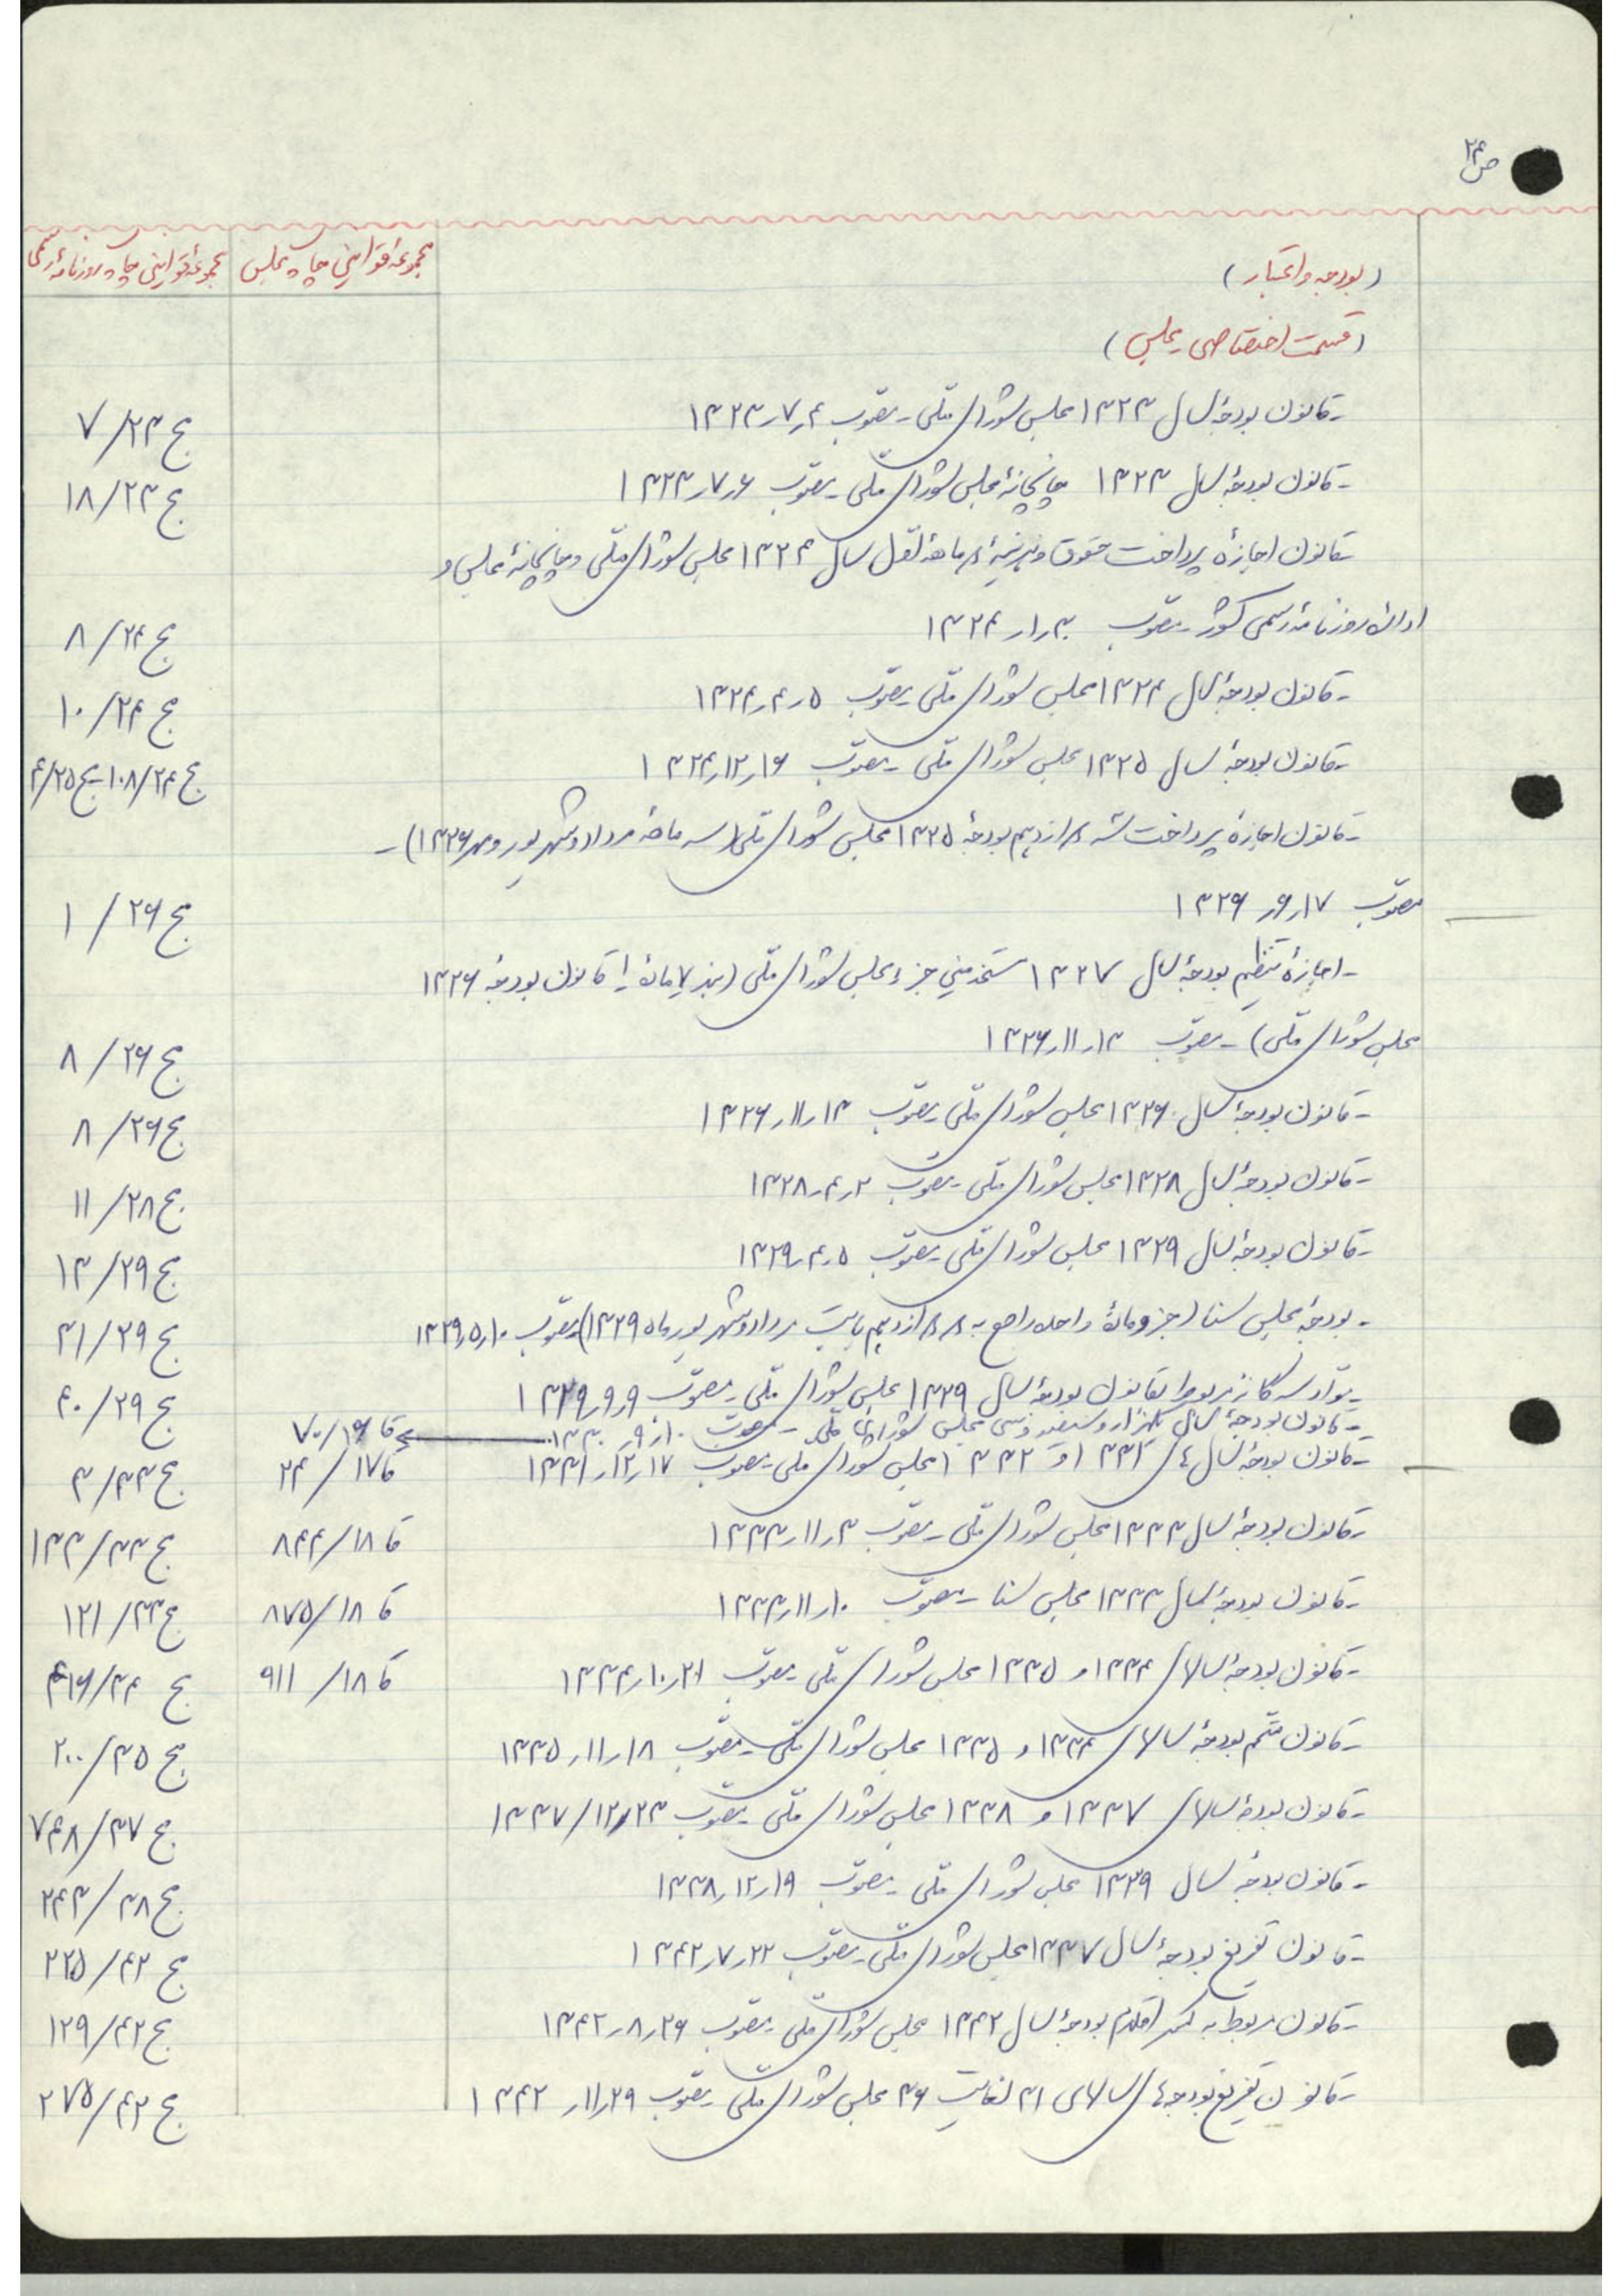 ص ۲۴
(بودجه و اعتبار) مجموعهٔ قوانین چاپ مجلس مجموعهٔ قوانین چاپ روزنامهٔ رسمی
(قسمت اختصاصی مجلس)
- قانون بودجهٔ سال ۱۳۲۳ مجلس شورای ملّی - مصّوب ۴ر۷ر۱۳۲۳ ج ۲۳/ ۷
- قانون بودجهٔ سال ۱۳۲۳ چاپخانهٔ مجلس شورای ملّی - مصّوب ۶ر۷ر۱۳۲۳ ج ۲۳/ ۱۸
- قانون اجازهٔ پرداخت حقوق و هزینهٔ ماههٔ اوّل سال ۱۳۲۴ مجلس شورای ملّی و چاپخانهٔ مجلس و
ادارهٔ روزنامهٔ رسمی کشور - مصّوب ۳۰ر۱ر۱۳۲۴ ج ۲۴/ ۸
- قانون بودجهٔ سال ۱۳۲۴ مجلس شورای ملّی - مصّوب ۵ر۴ر۱۳۲۴ ج ۲۴/ ۱۰
- قانون بودجهٔ سال ۱۳۲۵ مجلس شورای ملّی - مصّوب ۱۶ر۱۲ر۱۳۲۴ ج ۲۴/ ۱۰۸ - ج ۲۵/ ۴
- قانون اجازهٔ پرداخت سه دوازدهم بودجهٔ ۱۳۲۵ مجلس شورای ملّی (سه ماههٔ مرداد و شهریور و مهر ۱۳۲۶) -
مصّوب ۱۷ر۶ر۱۳۲۶ ج ۲۶/ ۱
- اجازهٔ تنظیم بودجهٔ سال ۱۳۲۷ مستخدمین جزء مجلس شورای ملّی ( مادهٔ قانون بودجهٔ ۱۳۲۶
مجلس شورای ملّی) - مصّوب ۱۳ر۱۱ر۱۳۲۶ ج ۲۶/ ۸
- قانون بودجهٔ سال ۱۳۲۶ مجلس شورای ملّی - مصّوب ۱۳ر۱۱ر۱۳۲۶ ج ۲۶/ ۸
- قانون بودجهٔ سال ۱۳۲۸ مجلس شورای ملّی - مصّوب ۲ر۴ر۱۳۲۸ ج ۲۸/ ۱۱
- قانون بودجهٔ سال ۱۳۲۹ مجلس شورای ملّی - مصّوب ۵ر۴ر۱۳۲۹ ج ۲۹/ ۱۳
- بودجهٔ مجلس سنا (جزو مادهٔ واحده راجع به دو دوازدهم بابت مرداد و شهریور ماه ۱۳۲۹) مصّوب ۱۰ر۵ر۱۳۲۹ ج ۲۹/ ۳۱
- مربوط بقانون بودجهٔ سال ۱۳۲۹ مجلس شورای ملّی - مصّوب ۹ر۹ر۱۳۲۹ ج ۲۹/ ۴۰
- قانون بودجهٔ سال یکهزار و سیصد و سی مجلس شورای ملّی - مصوب ۱۰ر۹ر۱۳۳۰ قا ۱۶/ ۷۰
- قانون بودجهٔ سال های ۱۳۳۱ و ۱۳۳۲ مجلس شورای ملی - مصوب ۱۷ر۱۲ر۱۳۳۱ قا ۱۷/ ۲۴ ج ۳۳/ ۳
- قانون بودجهٔ سال ۱۳۳۳ مجلس شورای ملّی - مصّوب ۳ر۱۱ر۱۳۳۳ قا ۱۸/ ۸۴۴ ج ۳۳/ ۱۳۳
- قانون بودجهٔ سال ۱۳۳۳ مجلس سنا - مصّوب ۱۰ر۱۱ر۱۳۳۳ قا ۱۸/ ۸۷۵ ج ۳۳/ ۱۲۱
- قانون بودجهٔ سالهای ۱۳۳۴ و ۱۳۳۵ مجلس شورای ملّی - مصّوب ۲۱ر۱۰ر۱۳۳۴ قا ۱۸/ ۹۱۱ ج ۳۴/ ۴۱۶
- قانون متّمم بودجهٔ سالهای ۱۳۳۴ و ۱۳۳۵ مجلس شورای ملّی - مصّوب ۱۸ر۱۱ر۱۳۳۵ ج ۳۵/ ۲۰۰
- قانون بودجهٔ سالهای ۱۳۳۷ و ۱۳۳۸ مجلس شورای ملّی - مصّوب ۲۳/۱۲/۱۳۳۷ ج ۳۷/ ۷۴۸
- قانون بودجهٔ سال ۱۳۳۹ مجلس شورای ملّی - مصّوب ۱۹ر۱۲ر۱۳۳۸ ج ۳۸/ ۲۴۳
- قانون تفریغ بودجهٔ سال ۱۳۳۷ مجلس شورای ملّی - مصّوب ۲۲ر۷ر۱۳۴۲ ج ۴۲/ ۲۲۵
- قانون مربوط به کسر اقلام بودجهٔ سال ۱۳۴۲ مجلس شورای ملّی - مصّوب ۲۶ر۸ر۱۳۴۲ ج ۴۲/ ۱۲۹
- قانون تفریغ بودجه های سالهای ۳۱ لغایت ۳۶ مجلس شورای ملّی - مصّوب ۲۹ر۱۱ر۱۳۴۲ ج ۴۲/ ۲۷۵